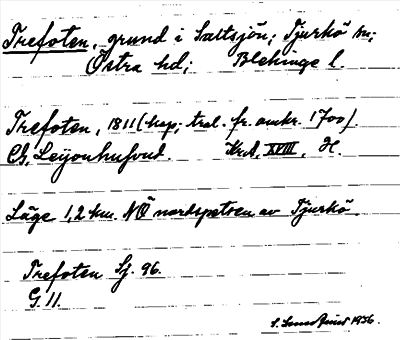 Trefoten, grund i Saltsjön; Tjurkö sn;
Östra hd; Blekinge l.
Trefoten, 1811 (kop; trol. fr. omkr. 1700).
Ch. Leijonhufvud. KrA, XVIII, H.
Läge 1,2 km. NÖ nordspetsen av Tjurkö.
Trefoten Sj. 96.
G. 11.
1936.